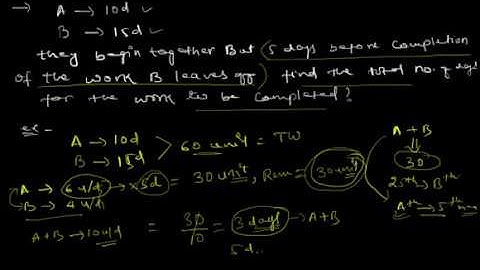 → A → 10d ✓
B → 15d ✓
they begin together But (5 days before completion
of the work B leaves off) find the total no. of days
for the work to be completed?
ex -
A → 10d
B → 15d > 60 unit = TW
A → 6 u/d → x 5d = 30 unit, Rem = 30 unit
B → 4 u/d
A+B → 10 u/d = 30/10 = 3 days → A+B
5 d..
A + B
⇓
30